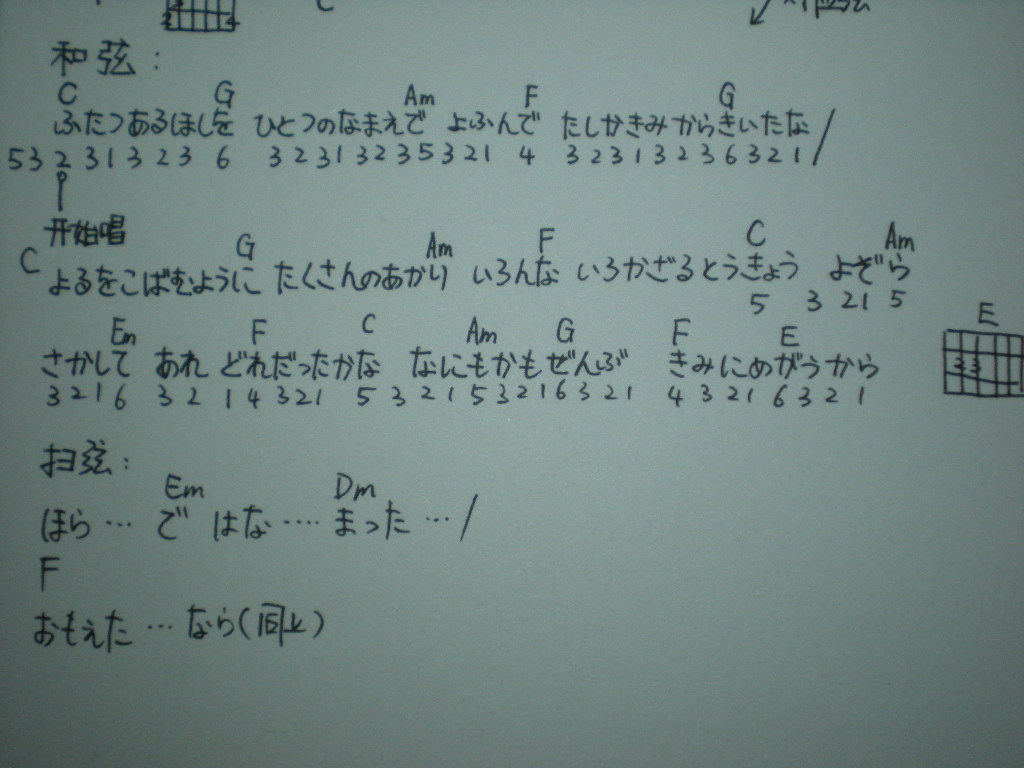 和弦:
C G Am F G
ふたつあるほしを ひとつのなまえで よふんで たしかきみからきいたな/
5 3 2 3 1 3 2 3 6 3 2 3 1 3 2 3 5 3 2 1 4 3 2 3 1 3 2 3 6 3 2 1
开始唱
C G Am F C Am
よるをこばむように たくさんのあかり いろんな いろかざるとうきょう よぞら
5 3 2 1 5
Em F C Am G F E
さかして あれ どれだったかな なにもかもぜんぶ きみにめがうから
3 2 1 6 3 2 1 4 3 2 1 5 3 2 1 5 3 2 1 6 3 2 1 4 3 2 1 6 3 2 1
E
3 3
扫弦:
Em Dm
ほら … で はな …. まった … /
F
おもえた … なら(同上)